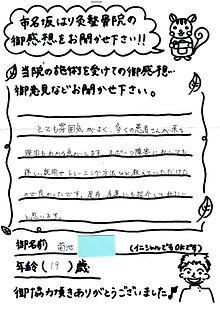 市名坂はり灸整骨院の
御感想をお聞かせ下さい!!
当院の施術を受けての御感想…
御意見などお聞かせ下さい。
とても雰囲気がよく、多くの患者さんが来る
理由もわかる気がします。スポーツ障害においても
詳しい説明やトレーニング方法など教えていただけた
ので良かったです。是非、友達にも紹介してほしい
と思います。
御名前 菊池
(イニシャルでもOKです)
年齢(19)歳
御協力頂きありがとうございました♪